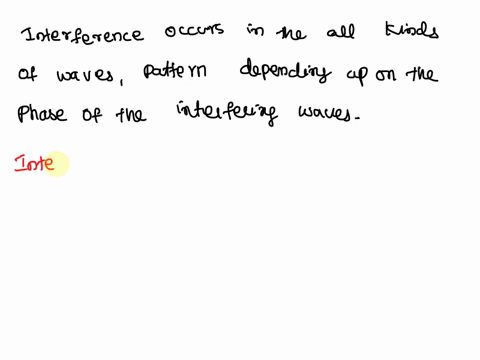 Interference occurs in the all kinds
of waves, pattern depending up on the
phase of the interfering waves.
Inte